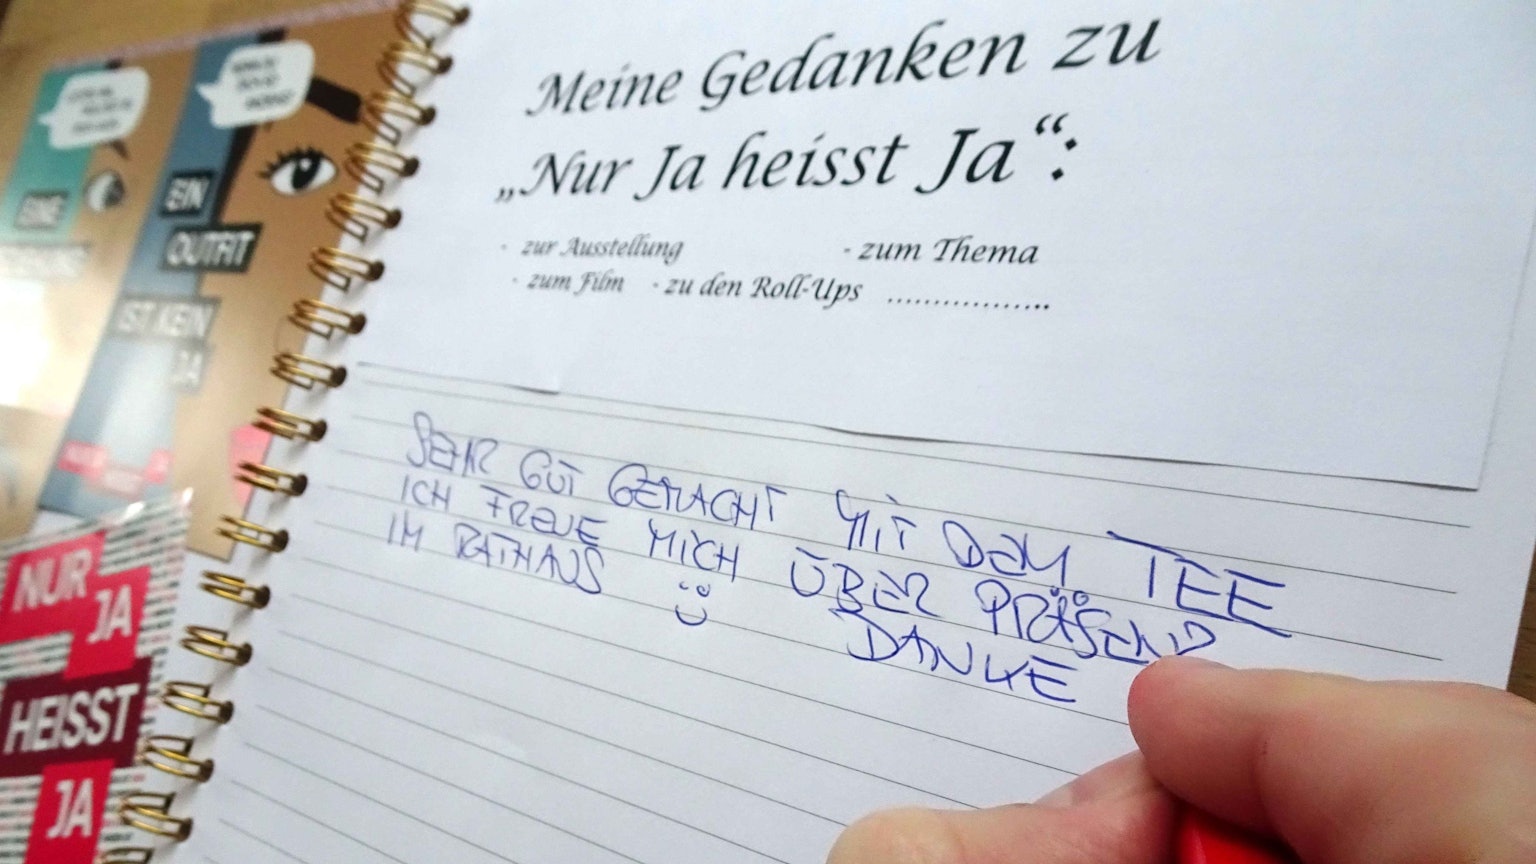 EINE
EIN
OUTFIT
IST KEIN
JA
NUR
JA
HEISST
JA
Meine Gedanken zu
„Nur Ja heisst Ja“:
- zur Ausstellung - zum Thema
- zum Film - zu den Roll-Ups ...................
SEHR GUT GEMACHT MIT DEM TEE
ICH FREUE MICH ÜBER PRÄSENZ
IM RATHAUS DANKE